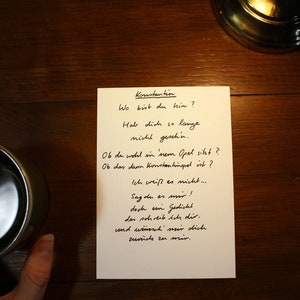 Konstantin
Wo bist du hin?
Hab dich so lange
nicht geseh'n.
Ob du wohl in 'nem Opel sitzt?
Ob das dann Konstantinopel ist?
Ich weiß es nicht...
Sag du es mir!
doch ein Gedicht
das schreib ich dir.
und wünsch' mir dich
zurück zu mir.